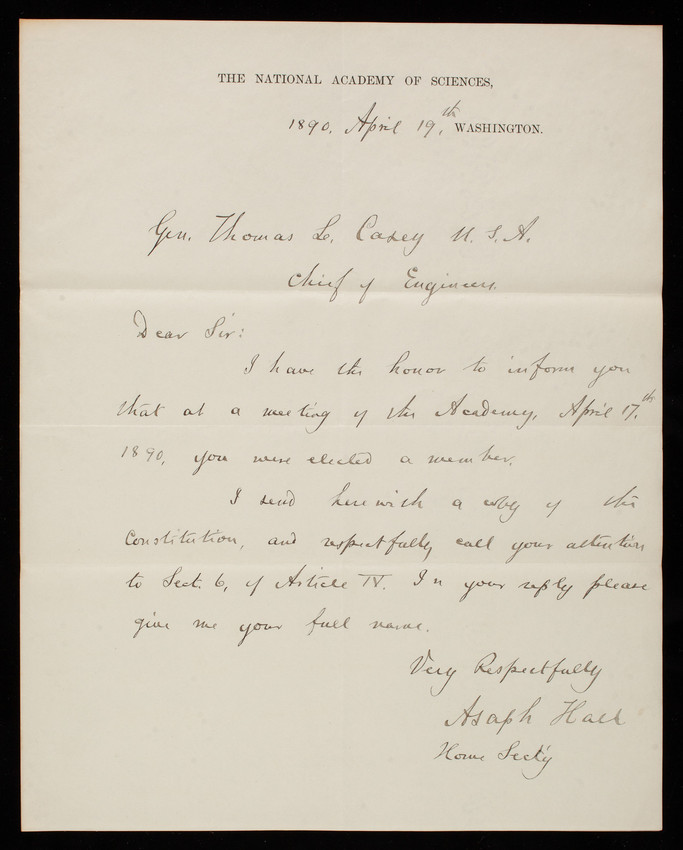 THE NATIONAL ACADEMY OF SCIENCES,
1890. April 19,th WASHINGTON.
Gen. Thomas L. Casey U.S.A.
Chief of Engineers.
Dear Sir:
I have the honor to inform you
that at a meeting of the Academy, April 17,th
1890, you were elected a member.
I send herewith a copy of the
Constitution, and respectfully call your attention
to Sect. 6, of Article IV. In your reply please
give me your full name.
Very Respectfully
Asaph Hall
Home Sect'y